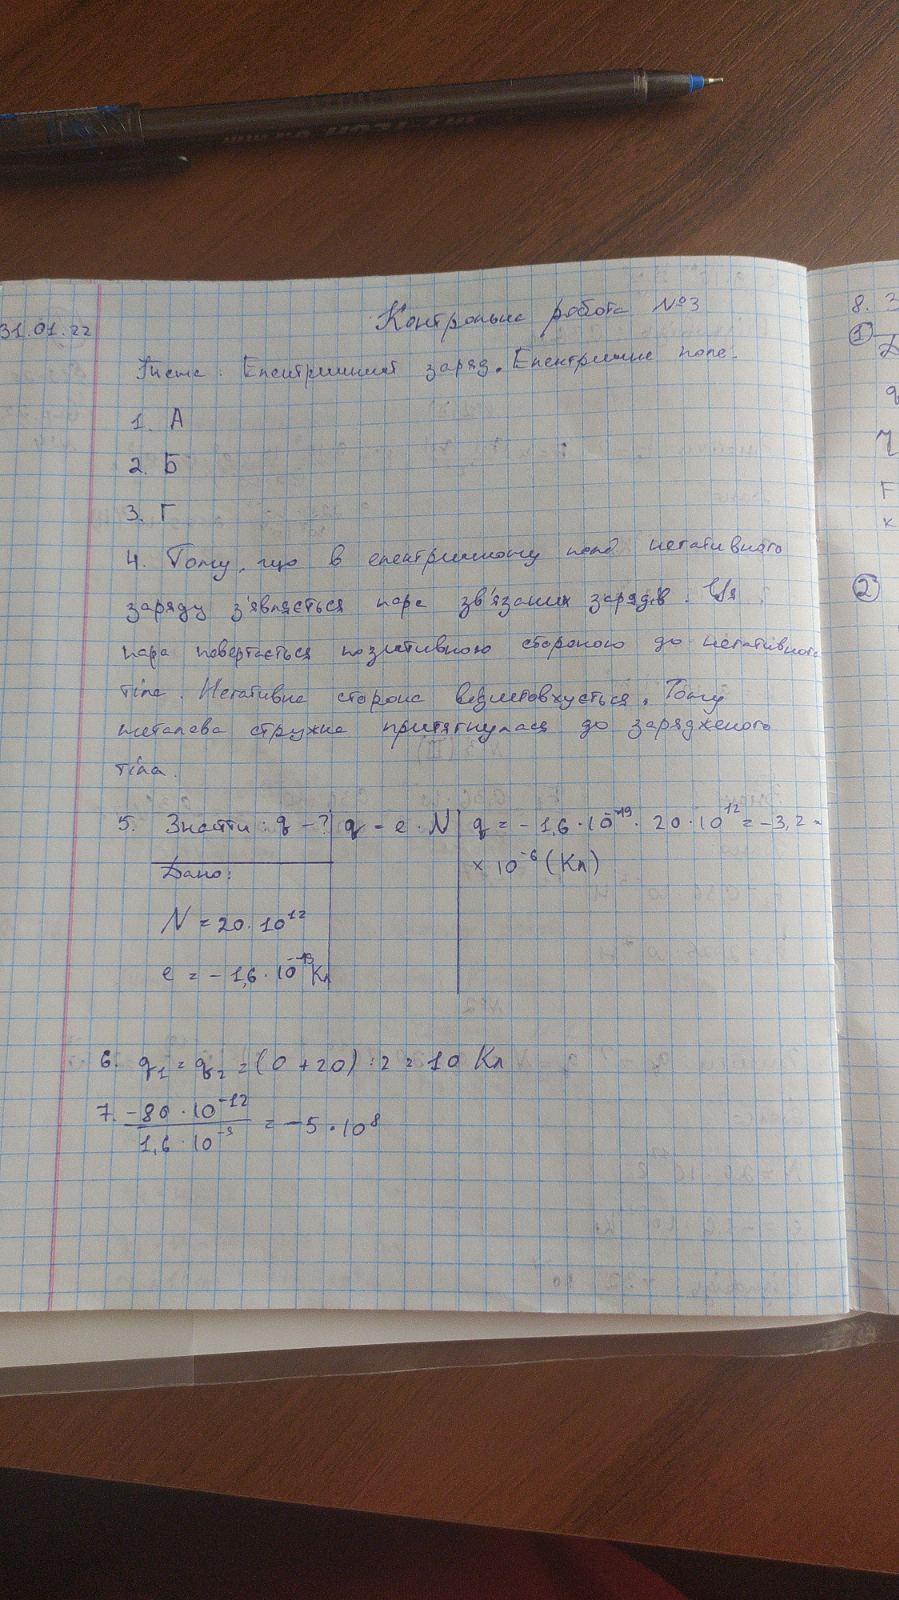 31.01.22
Контрольна робота №3
Тема: Електричний заряд. Електричне поле.
1. А
2. Б
3. Г
4. Тому, що в електричному полі негативного
заряду з'являється пара зв'язаних зарядів. Ця
пара повертається позитивною стороною до негативного
тіла. Негативна сторона відштовхується. Тому
металева стружка притягнулася до зарядженого
тіла.
5. Знайти: q - ? q = e · N q = -1,6 · 10⁻¹⁹ · 20 · 10¹² = -3,2 ·
× 10⁻⁶ (Кл)
Дано:
N = 20 · 10¹²
e = -1,6 · 10⁻¹⁹ Кл
6. q₁ = q₂ = (0 + 20) : 2 = 10 Кл
7. -80 · 10⁻¹² / 1,6 · 10⁻⁹ = -5 · 10⁸
8. З
①
Д
q
F
к
②